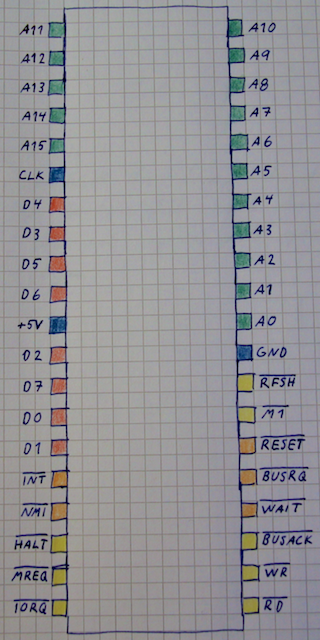 A11
A12
A13
A14
A15
CLK
D4
D3
D5
D6
+5V
D2
D7
D0
D1
INT
NMI
HALT
MREQ
IORQ
A10
A9
A8
A7
A6
A5
A4
A3
A2
A1
A0
GND
RFSH
M1
RESET
BUSRQ
WAIT
BUSACK
WR
RD